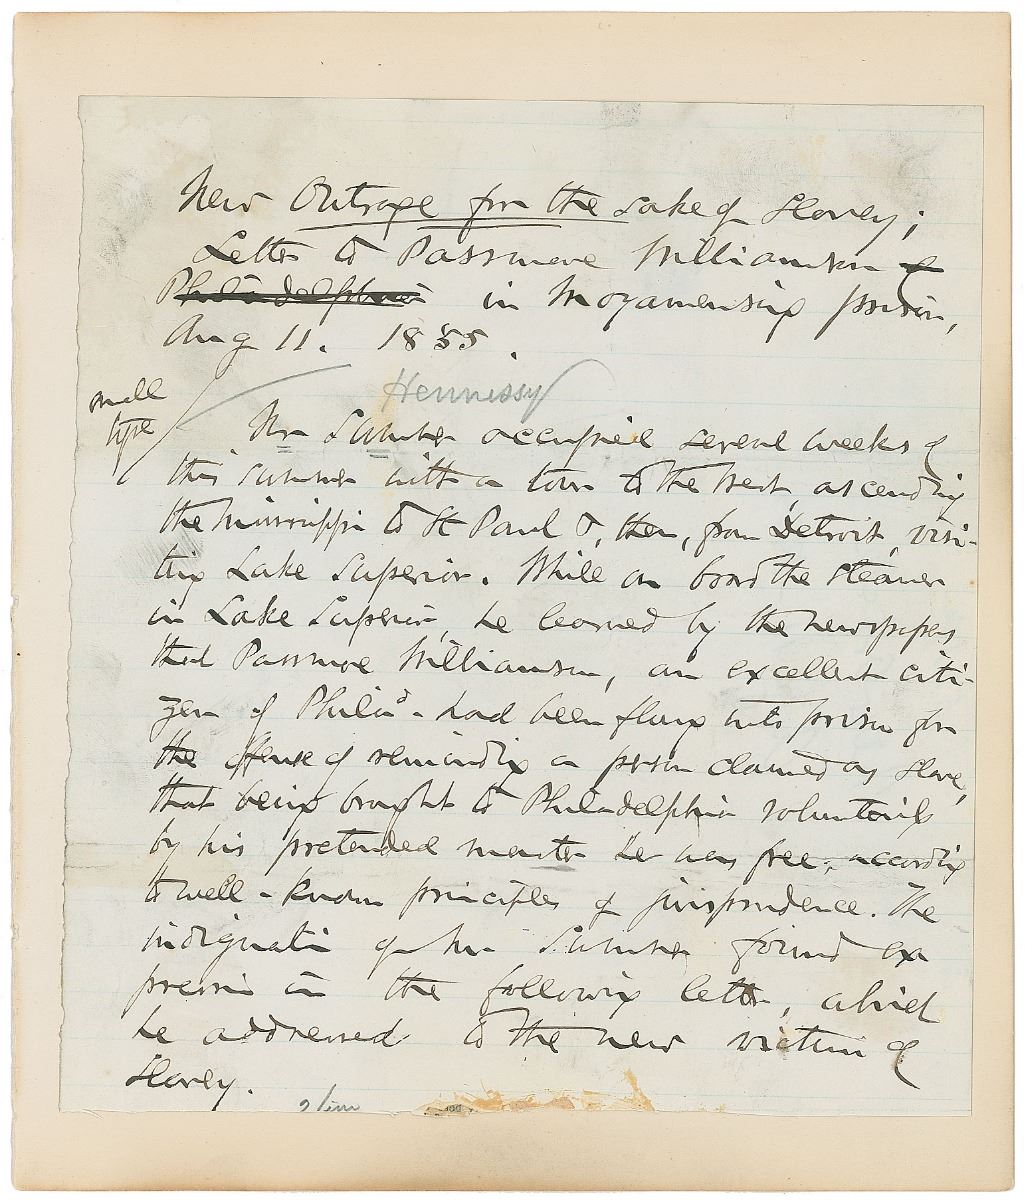 New Outrage for the sake of Slavery;
Letter to Passmore Williamson
Philadelphia in Moyamensing prison,
Aug 11. 1855.
Hennessy
small
type
Mr Sumner occupied several weeks of
this summer with a tour to the West, ascending
the Mississippi to St Paul &, then, from Detroit, visi-
ting Lake Superior. While on board the steamer
in Lake Superior, he learned by the newspapers
that Passmore Williamson, an excellent citi-
zen of Philad - had been flung into prison for
the offense of reminding a person claimed as slave,
that being brought to Philadelphia voluntarily
by his pretended master he was free, according
to well-known principles of jurisprudence. The
indignation of Mr Sumner found ex
pression in the following letter, which
he addressed to the new victim of
Slavery.